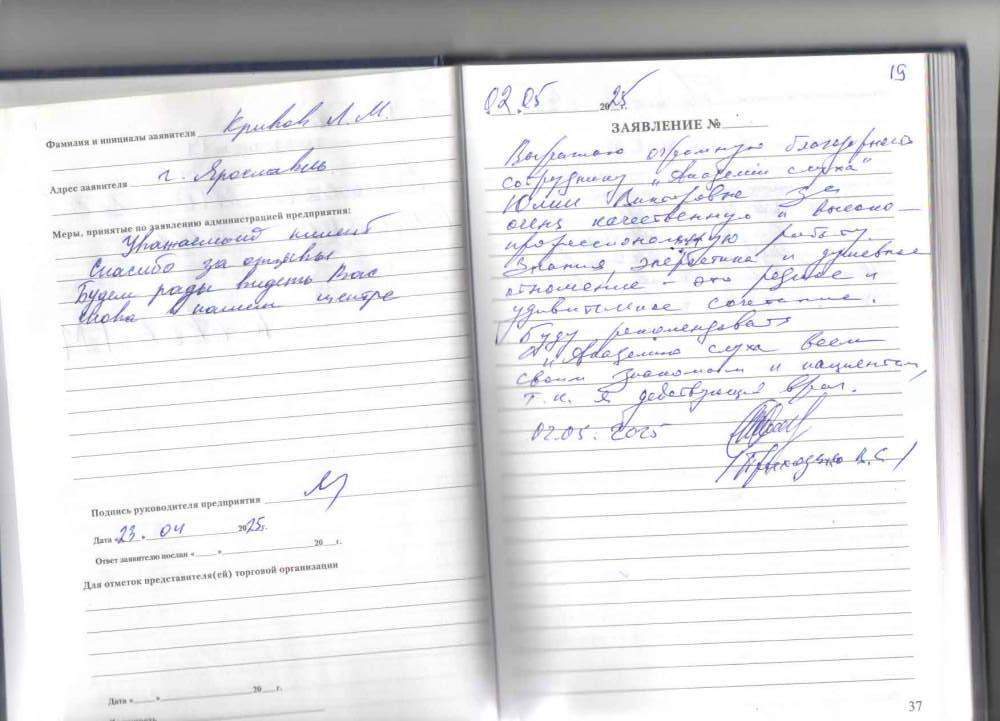 Фамилия и инициалы заявителя Криков Л. М.
Адрес заявителя г. Ярославль
Меры, принятые по заявлению администрацией предприятия:
Уважаемый клиент
Спасибо за отзывы
Будем рады видеть Вас
снова в нашем центре
Подпись руководителя предприятия
Дата «23» 04 2025г.
Ответ заявителю послан «___» ___ 20__г.
Для отметок представителя(ей) торговой организации
Дата «___» ___ 20__г.
19
02.05 2025г.
ЗАЯВЛЕНИЕ №
Выражаю огромную благодарность
сотруднику "Академии слуха"
Юлии Викторовне за
очень качественную и высоко-
профессиональную работу.
Знания, энергетика и душевное
отношение - это редкое и
удивительное сочетание.
Буду рекомендовать
"Академию слуха всем
своим знакомым и пациентам,
т.к. я действующий врач.
02.05.2025
/Приходько В.С./
37